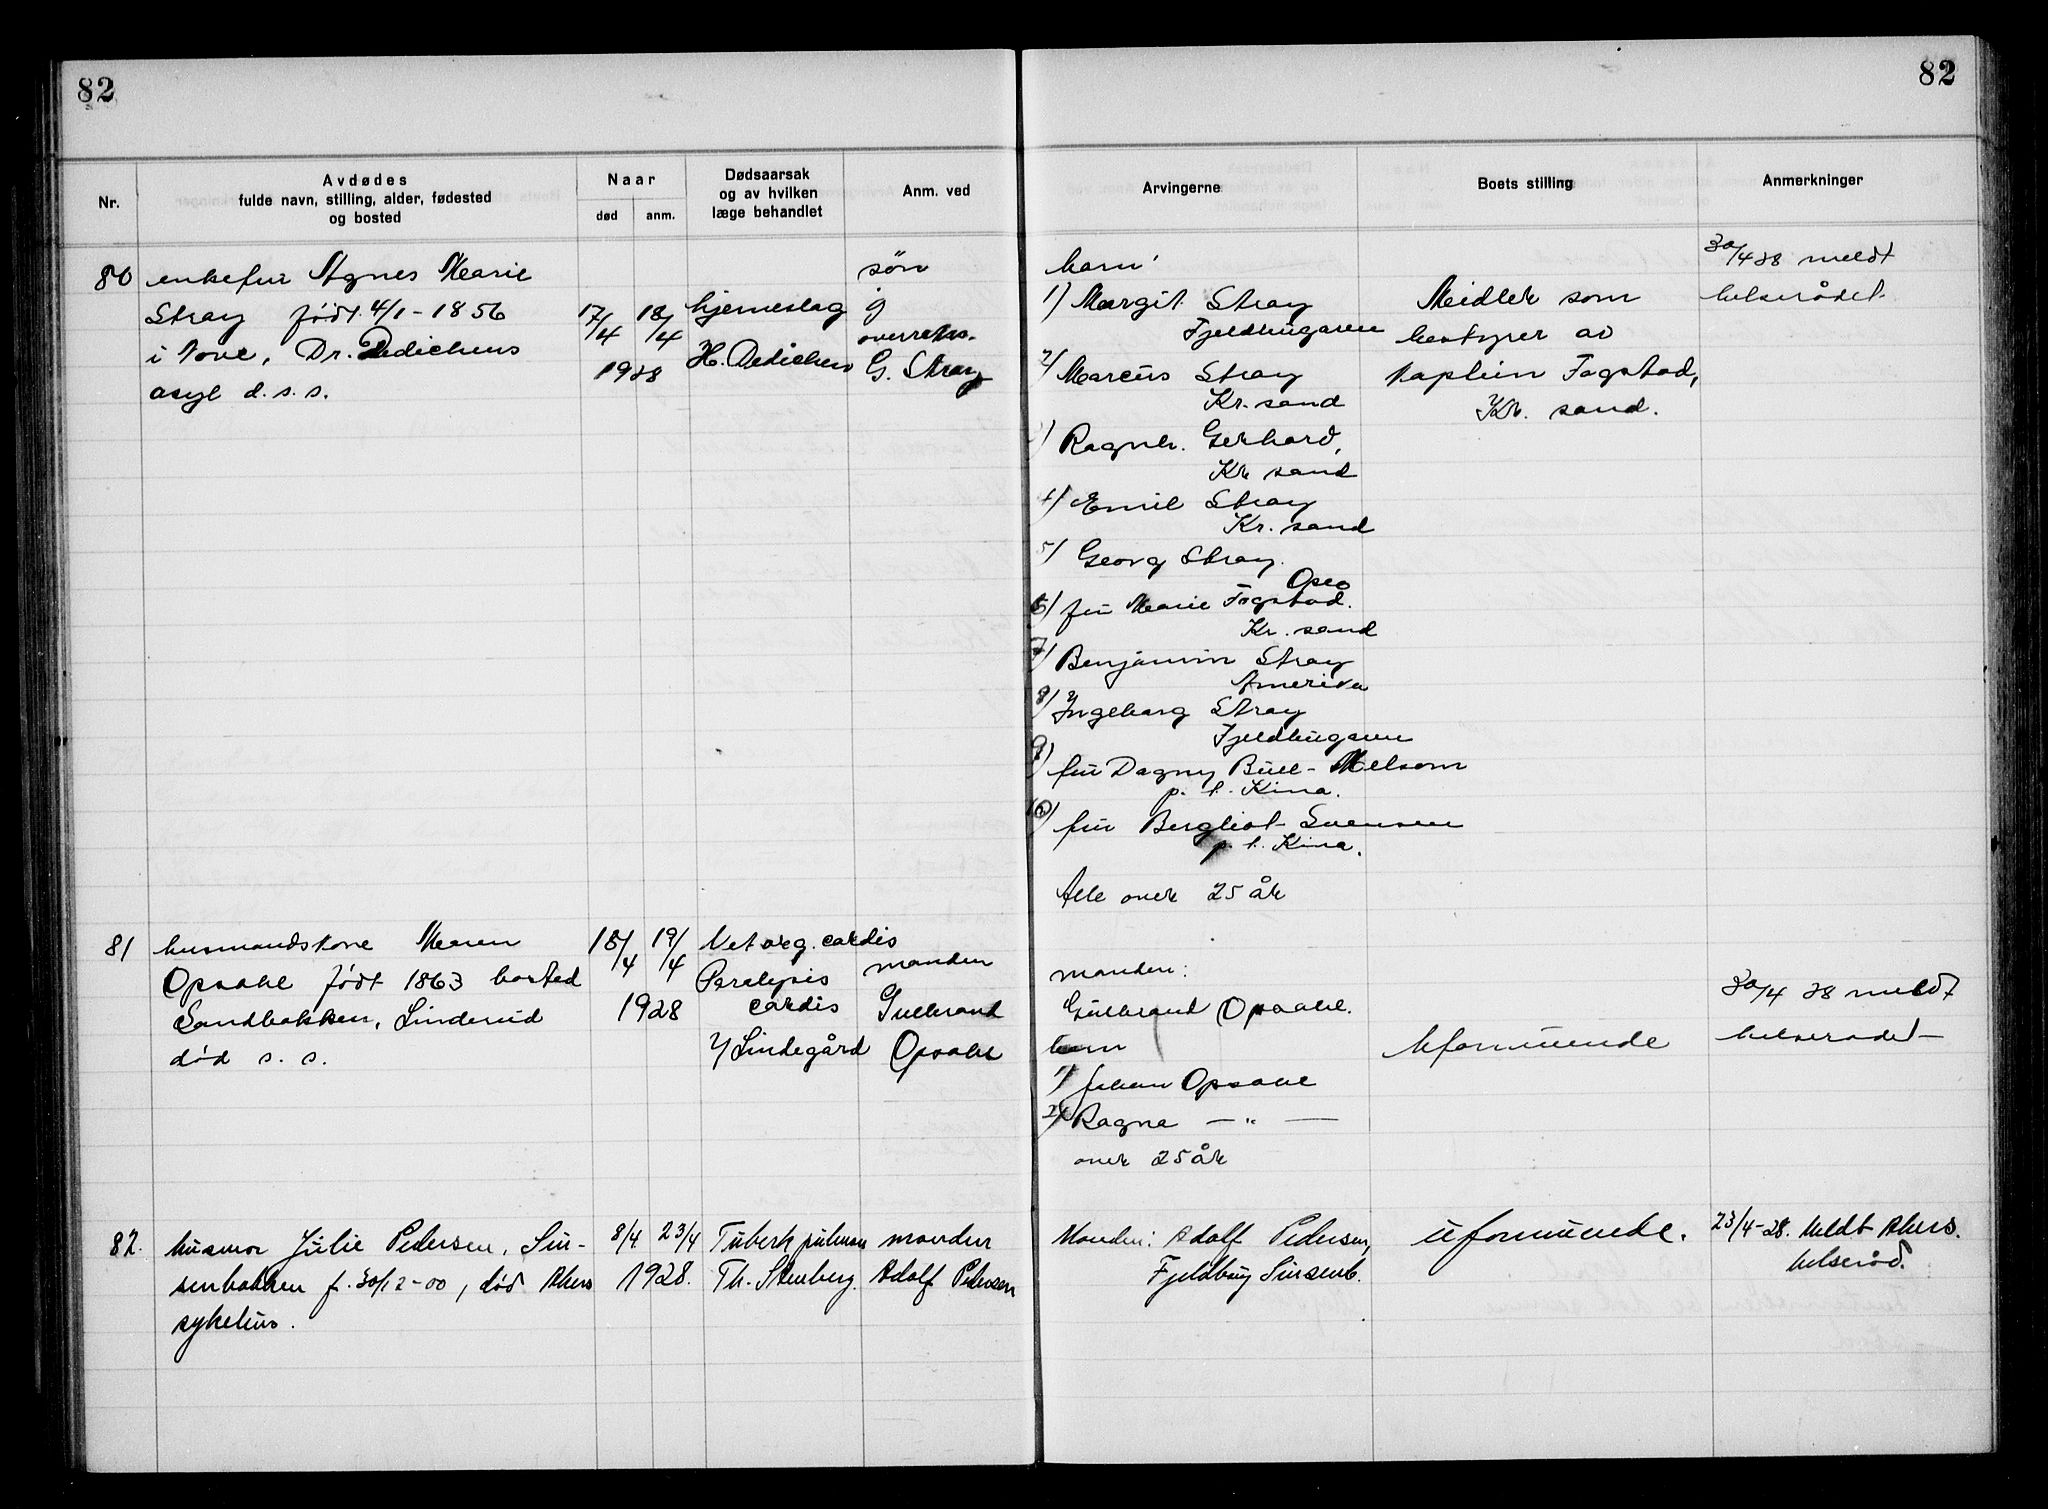 82
82
Nr.
Avdødes
fulde navn, stilling, alder, fødested
og bosted
Naar
død
anm.
Dødsaarsak
og av hvilken
læge behandlet
Anm. ved
Arvingerne
Boets stilling
Anmerkninger
80
enkefru Agnes Marie
Stray født 4/1 - 1856
i Dr. Dedichens
asyl d. s. s.
17/4
18/4
1928
hjerneslag
H. Dedichen
søn
G. Stray
barn
1) Margit Stray
2) Marcus Stray
Kr. sand
3) Ragnh. Gerhard,
Kr. sand
4) Emil Stray
Kr. sand
5) Georg Stray.
Oslo
6) fru Marie Fogstad.
Kr. sand
7) Benjamin Stray
Amerika
8) Ingeborg Stray
9) fru Dagny Bull-Melsom
p. t. Kina.
10) fru Bergliot Svensen
p. t. Kina.
Alle over 25 år
Midler som
bestyrer av
kaptein Fogstad,
Kr. sand.
30/4 28 meldt
helserådet
81
husmandskone Maren
Opsahl født 1863 bosted
Sandbakken, Linderud
død s. s.
18/4
19/4
1928
Vet. org. cordis
Paralysis
cordis
Y/ Lindegård
manden
Gulbrand
Opsahl
manden:
Gulbrand Opsahl.
barn
1) Johan Opsahl
2) Ragna — " —
over 25 år
Uformuende
30/4 28 meldt
helserådet
82.
husmor Julie Pedersen, Sin-
senbakken f. 30/12-00, død Akers
sykehus.
8/4
23/4
1928.
Tuberk pulmon
Th. Stenberg.
manden
Adolf Pedersen
Manden: Adolf Pedersen,
Fjeldhaug Sinsenb.
uformuende.
23/4-28. Meldt Akers
helseråd.